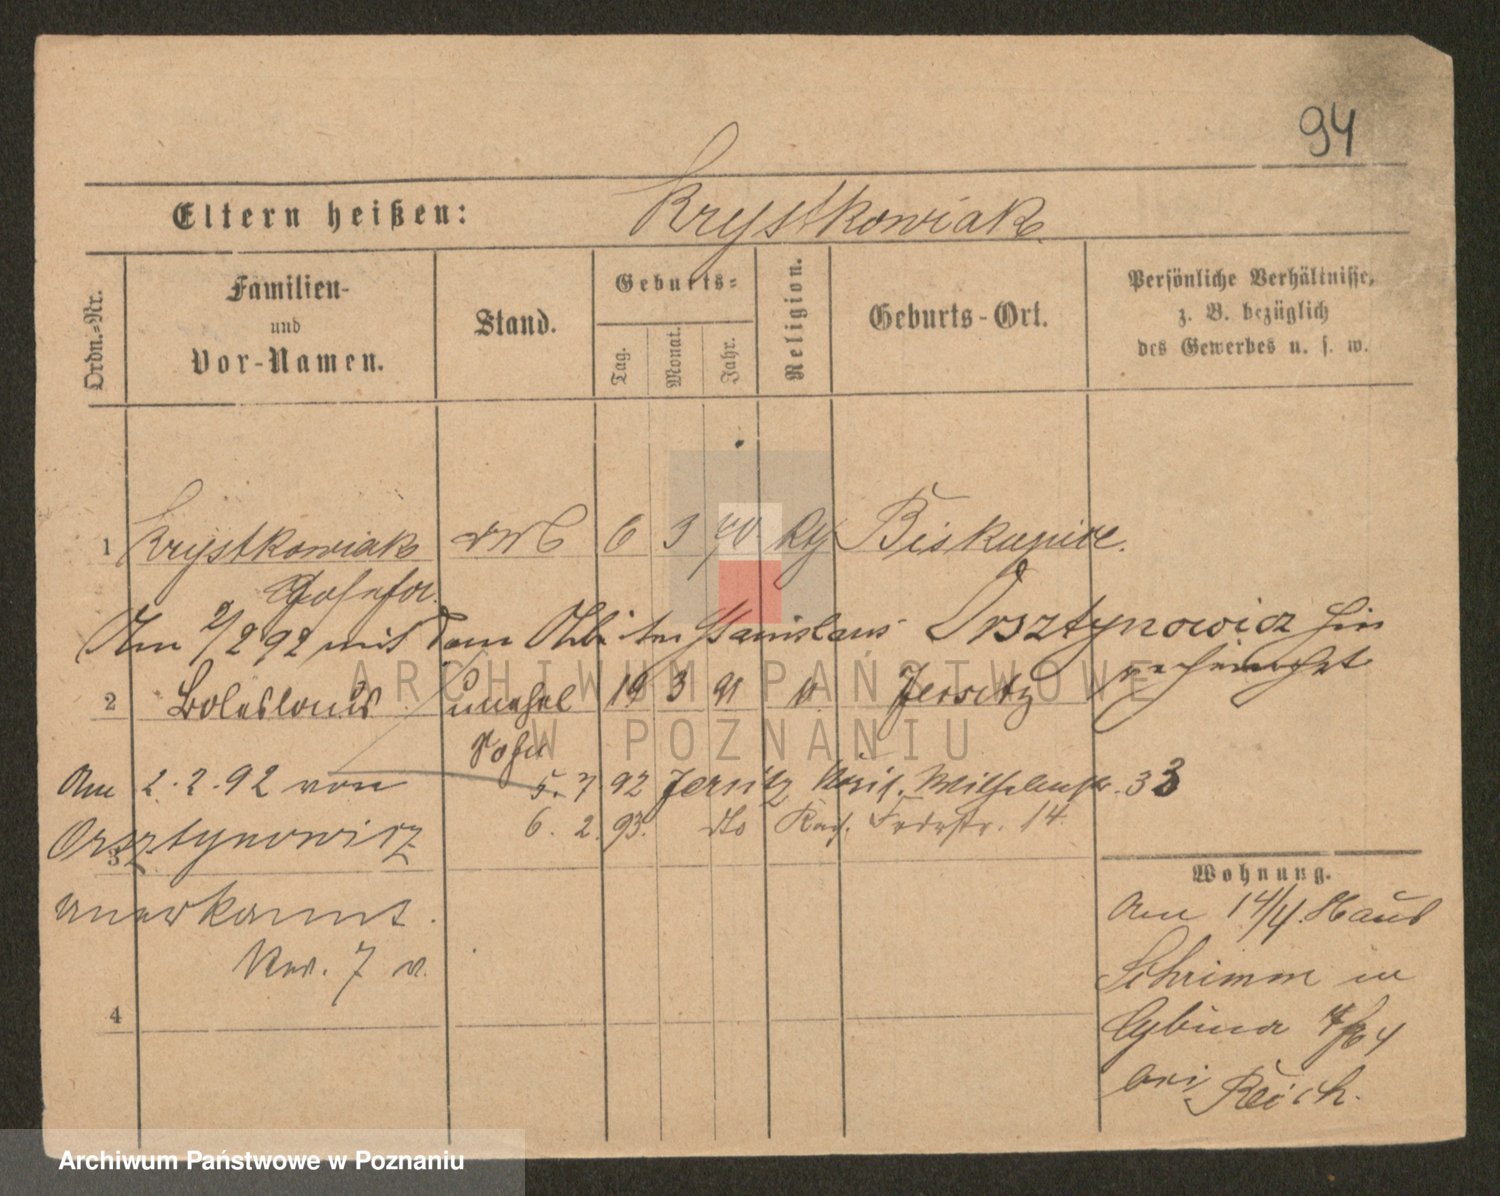 94
Eltern heißen: Krystkowiak
Ordn.-Nr.
Familien-
und
Vor-Namen.
Stand.
Geburts-
Tag.
Monat.
Jahr.
Religion.
Geburts-Ort.
Persönliche Verhältnisse,
z. B. bezüglich
des Gewerbes u. s. w.
1 Krystkowiak 6 3 70 Biskupice.
Josefa.
Am 2/2 92 mit dem Stanislaus Orsztynowicz hier
2 Boleslaus unehel 19 3 91 Jersitz
Sohn
Am 2.2.92 von
5. 7 92 Jersitz 33
Orsztynowicz
6. 2. 93. dto 14.
3
anerkannt.
7
4
Wohnung.
Am 14/4. Haus
Schrimm in
Cybina
bei Reich.
ARCHIWUM PAŃSTWOWE
W POZNANIU
Archiwum Państwowe w Poznaniu